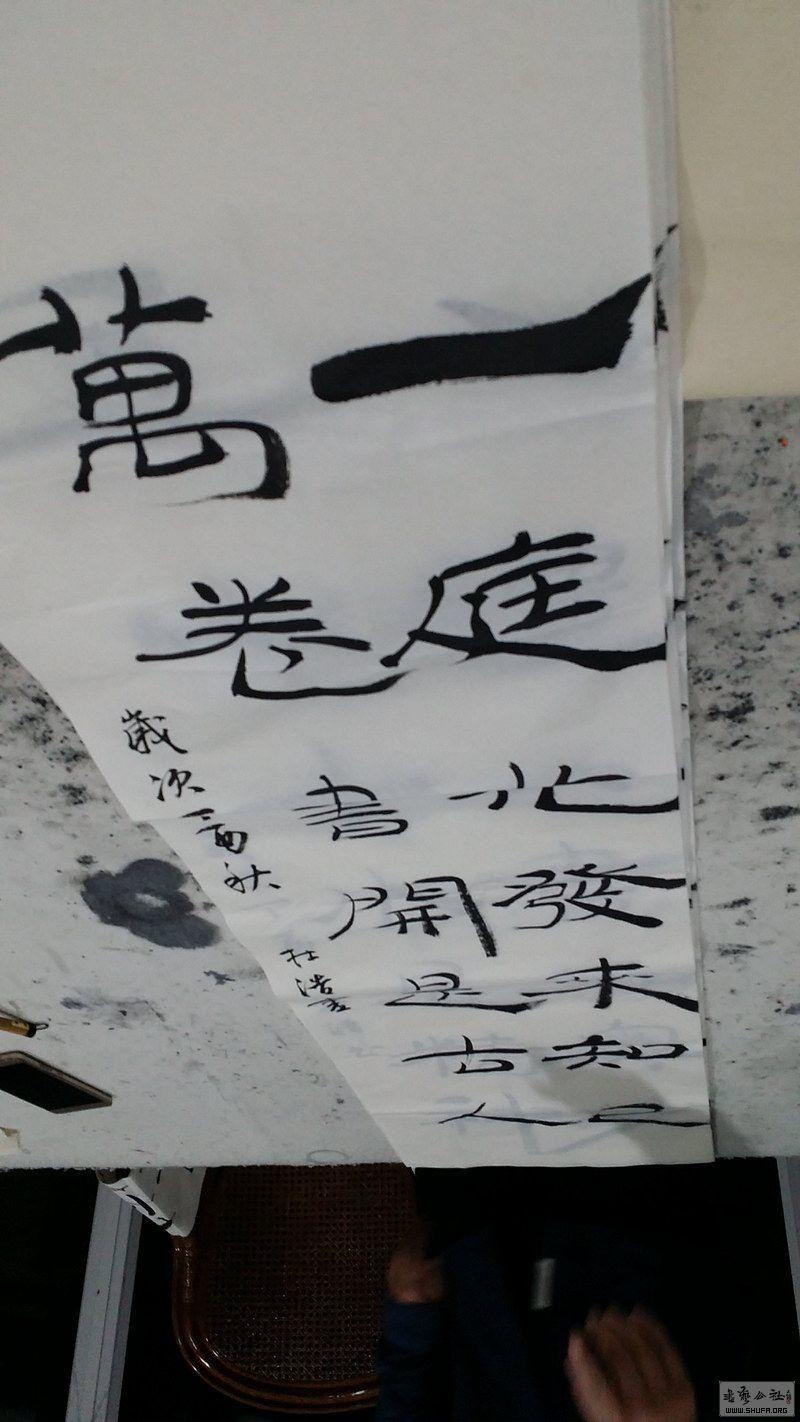 一庭化發來知己
萬卷書開是古人
歲次 秋
杜浩
書艺公社
WWW.SHUFA.ORG